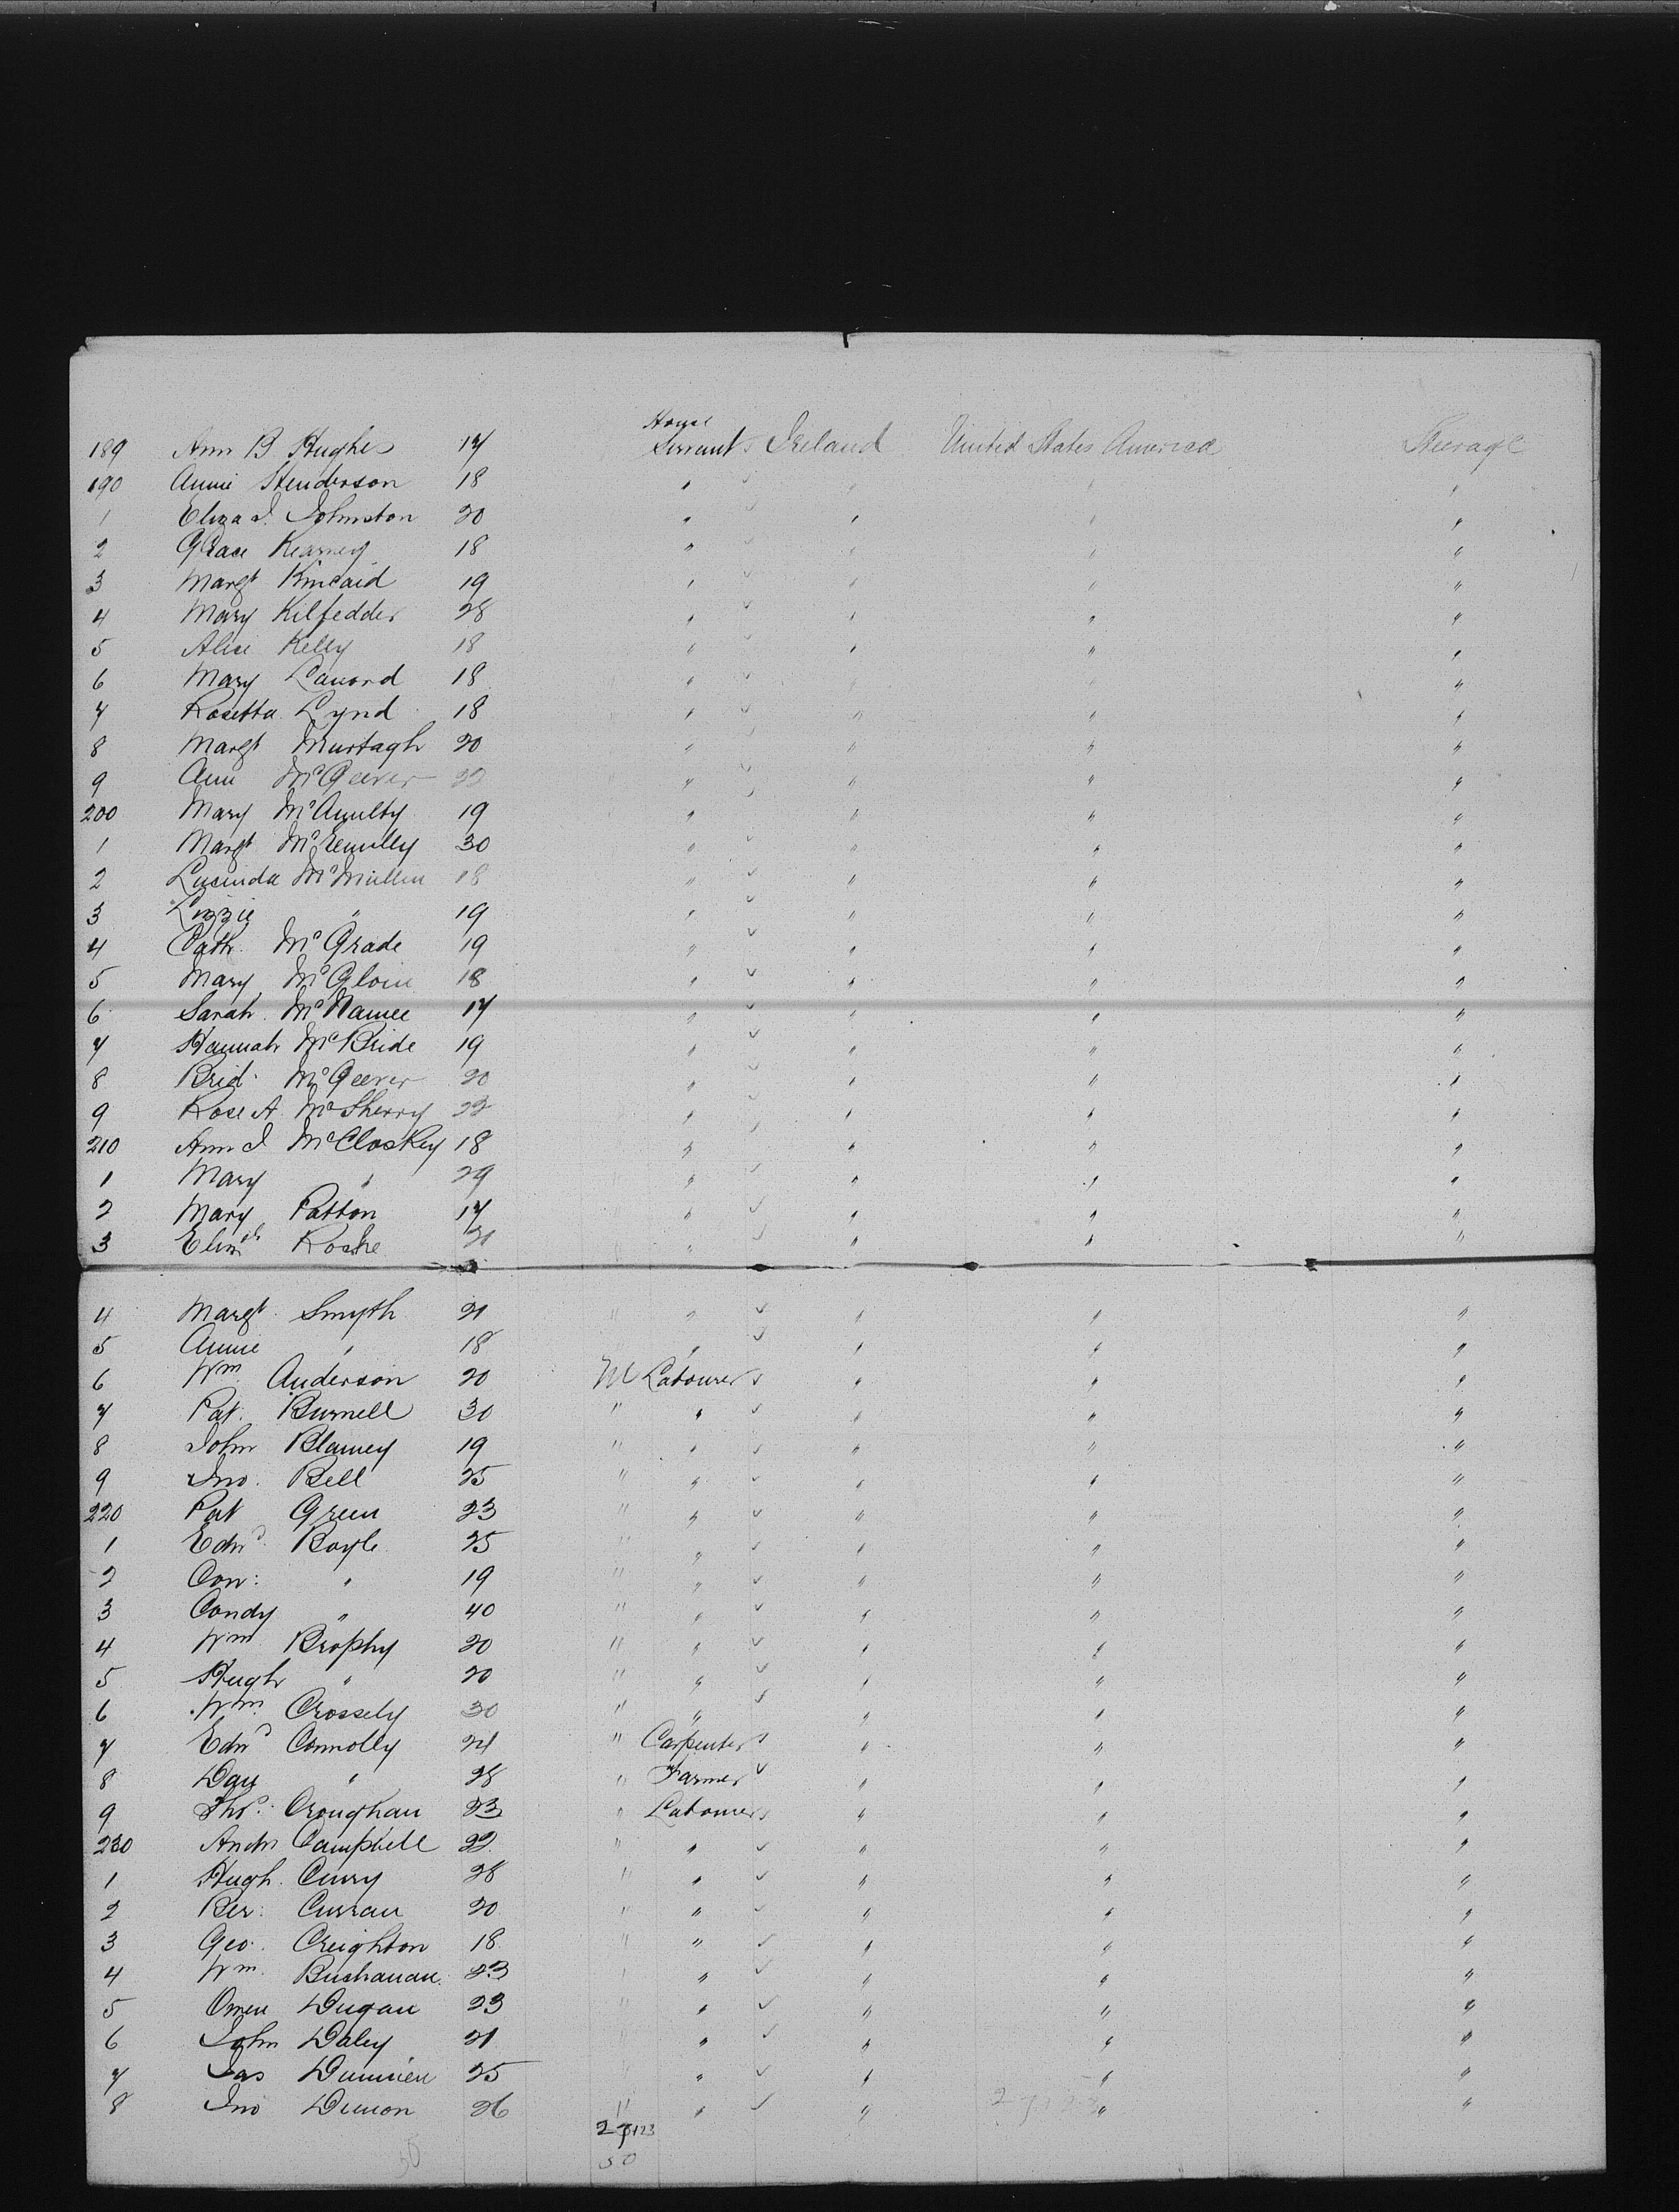 House
189 Ann B Hughes 17 Servant Ireland United States America Steerage
190 Annie Henderson 18 " " " "
1 Eliza J. Johnston 20 " " " "
2 Grace Kearney 18 " " " "
3 Margt Kincaid 19 " " " "
4 Mary Kilfedder 28 " " " "
5 Alice Kelly 18 " " " "
6 Mary 18 " " " "
7 Rosetta Lynd 18 " " " "
8 Margt Murtagh 20 " " " "
9 Ann McGeever 22 " " " "
200 Mary McAnulty 19 " " " "
1 Margt 30 " " " "
2 Lucinda McMullen 18 " " " "
3 Lizzie " 19 " " " "
4 Cath. McGrade 19 " " " "
5 Mary McGloin 18 " " " "
6 Sarah McNamee 17 " " " "
7 Hannah McBride 19 " " " "
8 Brid. McGeever 20 " " " "
9 Rose A. McSherry 22 " " " "
210 Ann J McCloskey 18 " " " "
1 Mary " 29 " " " "
2 Mary Patton 17 " " " "
3 Elizth 21 " " " "
4 Margt Smyth 21 " " " " "
5 Annie " 18 " " " "
6 Wm. Anderson 20 M Labourer " " "
7 Pat. Burnell 30 " " " " "
8 John Blamey 19 " " " " "
9 Jno. Bell 25 " " " " "
220 Pat Green 23 " " " " "
1 Edwd Boyle 25 " " " " "
2 Con: " 19 " " " " "
3 Condy " 40 " " " " "
4 Wm Brophy 20 " " " " "
5 Hugh " 20 " " " " "
6 Wm. Crossely 30 " " " " "
7 Edwd Connolly 21 " Carpenter " " "
8 Dan " 28 " Farmer " " "
9 Thos. Croughan 23 " Labourer " " "
230 Andw Campbell 22 " " " " "
1 Hugh. Curry 28 " " " " "
2 Ber: Curran 20 " " " " "
3 Geo. Creighton 18 " " " " "
4 Wm. Buchanan 23 " " " " "
5 Owen Dugan 23 " " " " "
6 John Daley 21 " " " " "
7 Jas 25 " " " " "
8 Jno 26 " " " " "
50